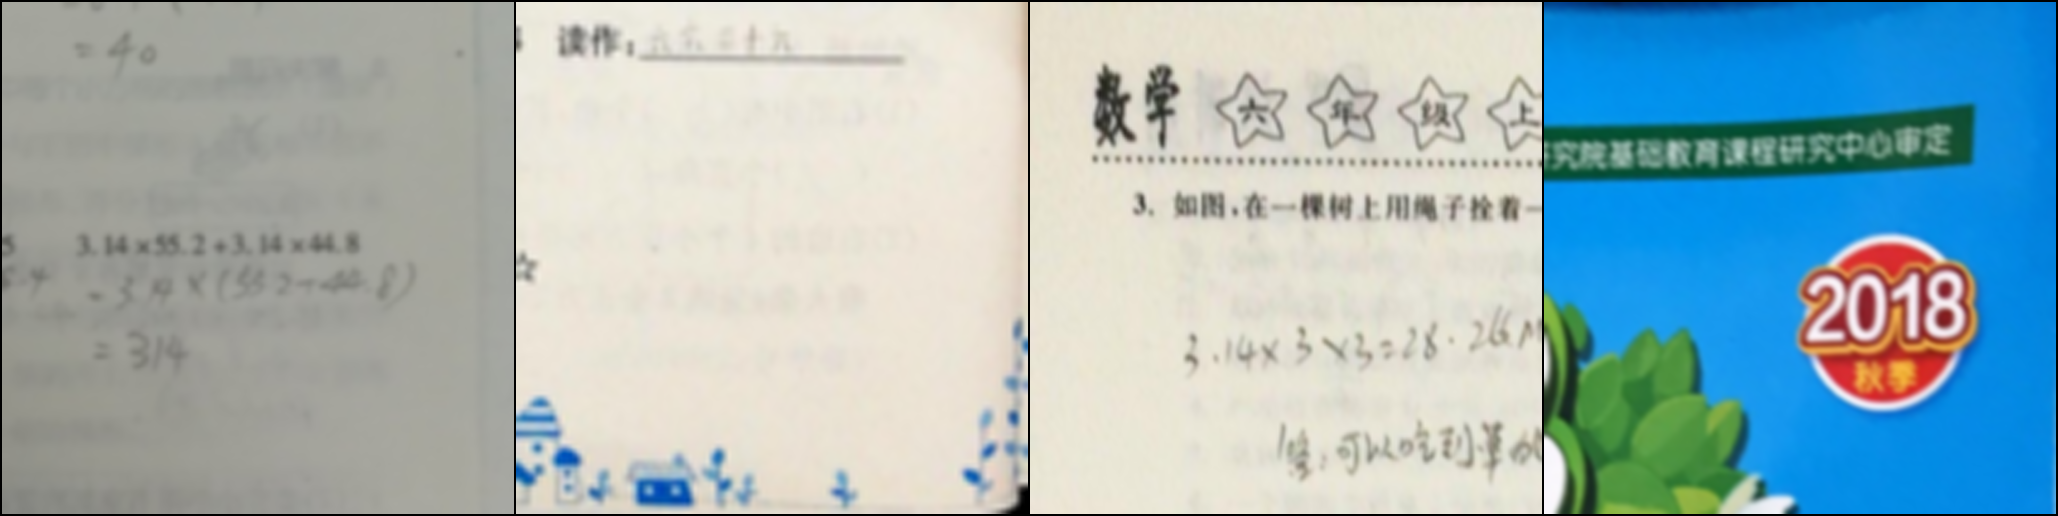 = 40
5 3.14×55.2+3.14×44.8
= 314
读作:
数学 六 年 级 上
3. 如图,在一棵树上用绳子拴着一
3.14×3×3=28.26
答:可以吃到草的
究院基础教育课程研究中心审定
2018
秋季